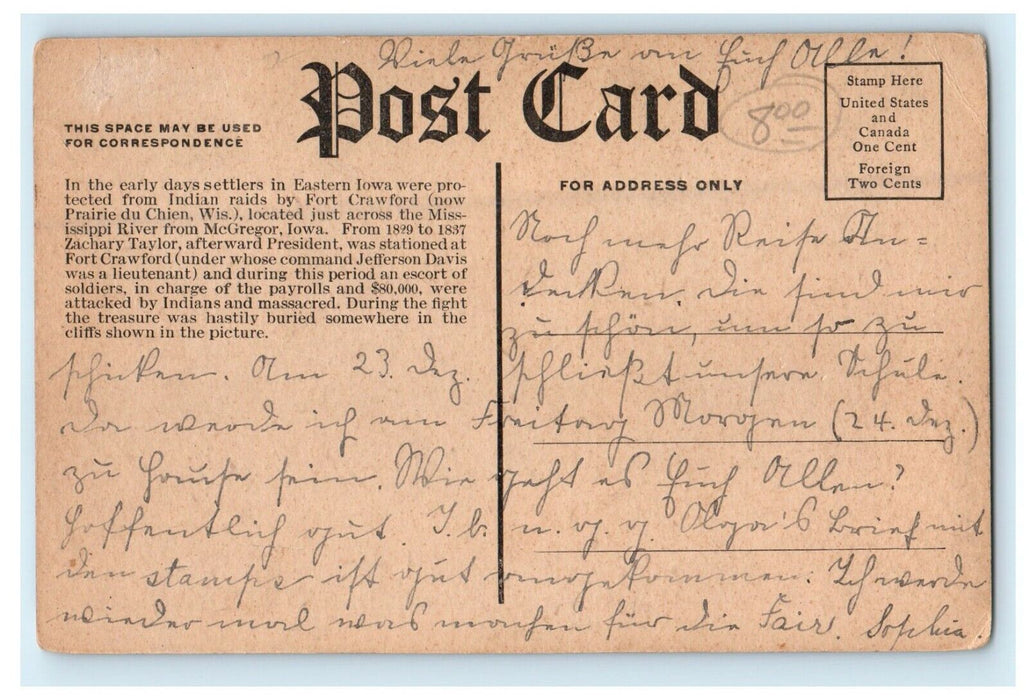 Viele Grüße an Euch Alle!
Post Card
8 00
Stamp Here
United States
and
Canada
One Cent
Foreign
Two Cents
THIS SPACE MAY BE USED
FOR CORRESPONDENCE
In the early days settlers in Eastern Iowa were pro-
tected from Indian raids by Fort Crawford (now
Prairie du Chien, Wis.), located just across the Miss-
issippi River from McGregor, Iowa. From 1829 to 1837
Zachary Taylor, afterward President, was stationed at
Fort Crawford (under whose command Jefferson Davis
was a lieutenant) and during this period an escort of
soldiers, in charge of the payrolls and $80,000, were
attacked by Indians and massacred. During the fight
the treasure was hastily buried somewhere in the
cliffs shown in the picture.
FOR ADDRESS ONLY
Noch mehr Reise An=
decken. Die sind mir
zu schön, um so zu
schicken. Am 23. Dez. schließt unsere Schule.
Da werde ich am Freitag Morgen (24. Dez.)
zu Hause sein. Wie geht es Euch Allen?
Hoffentlich gut. I. b. n. g. g. Olga's Brief mit
den stamps ist gut angekommen. Ich werde
wieder mal was machen für die Fair. Sophia.